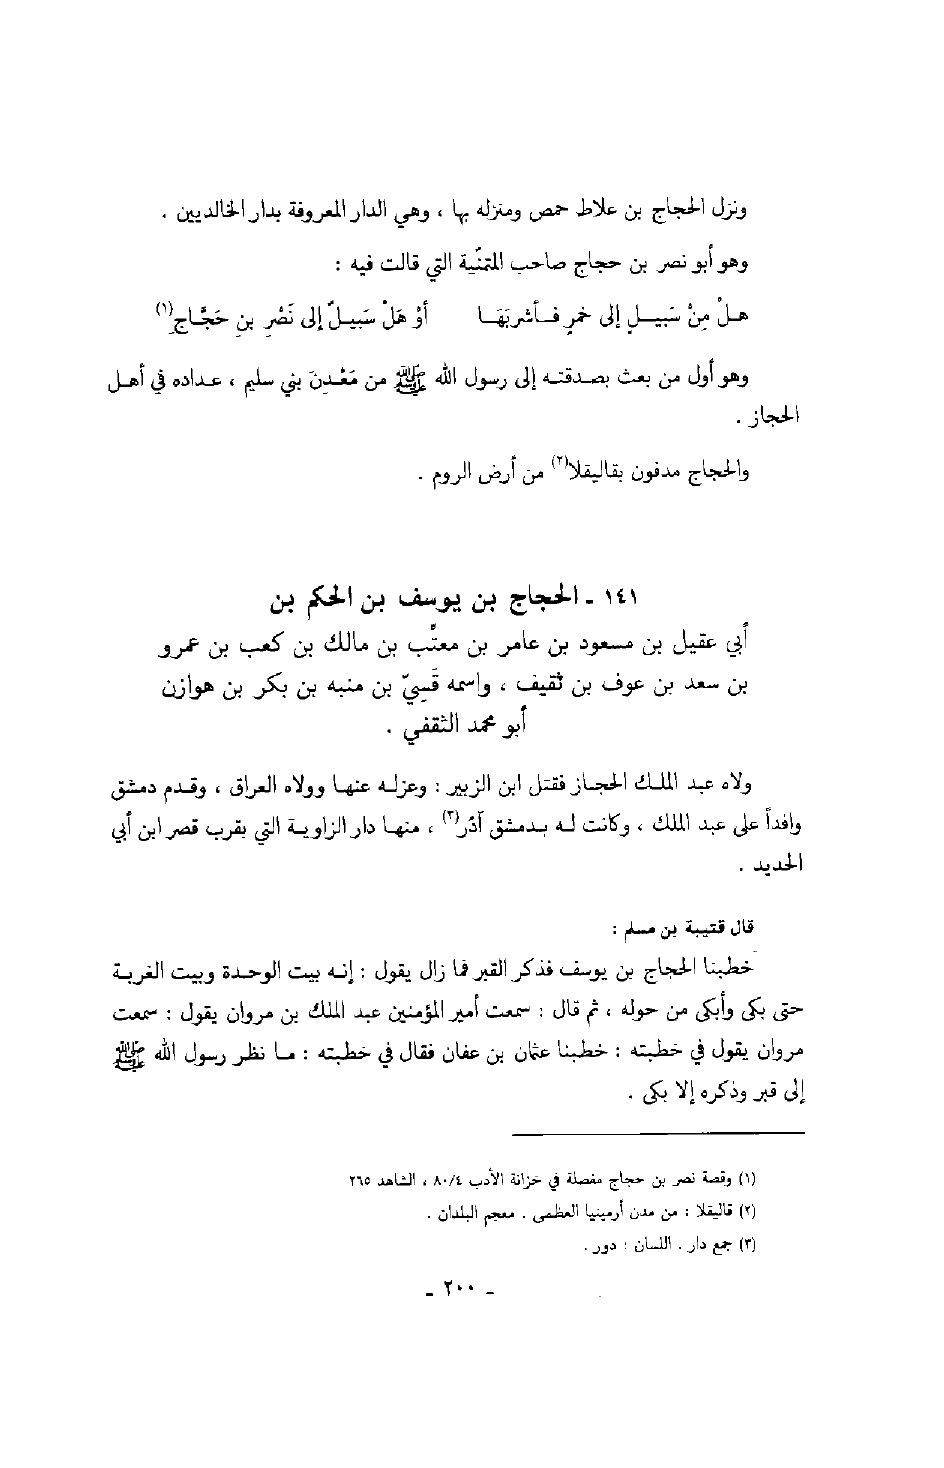 ونزل الحجاج بن علاط حمص ومنزله بها ، وهي الدار المعروفة بدار الخالديين .
وهو أبو نصر بن حجاج صاحب المتمنّية التي قالت فيه :
هلْ مِنْ سَبيلٍ إلى خمرٍ فأشربَهَا أوْ هَلْ سَبيلٌ إلى نَصْرِ بنِ حَجَّاجِ(١)
وهو أول من بعث بصدقته إلى رسول الله ﷺ من مَعْدِنَ بني سليم ، عداده في أهل
الحجاز .
والحجاج مدفون بقاليقلا(٢) من أرض الروم .
١٤١ - الحجاج بن يوسف بن الحكم بن
أبي عقيل بن مسعود بن عامر بن معتِّب بن مالك بن كعب بن عمرو
بن سعد بن عوف بن ثقيف ، واسمه قَسِيّ بن منبه بن بكر بن هوازن
أبو محمد الثقفي .
ولاه عبد الملك الحجاز فقتل ابن الزبير : وعزله عنها وولاه العراق ، وقدم دمشق
وافداً على عبد الملك ، وكانت له بدمشق آدُر(٣) ، منها دار الزاوية التي بقرب قصر ابن أبي
الحديد .
قال قتيبة بن مسلم :
خطبنا الحجاج بن يوسف فذكر القبر فما زال يقول : إنه بيت الوحدة وبيت الغربة
حتى بكى وأبكى من حوله ، ثم قال : سمعت أمير المؤمنين عبد الملك بن مروان يقول : سمعت
مروان يقول في خطبته : خطبنا عثمان بن عفان فقال في خطبته : ما نظر رسول الله ﷺ
إلى قبر وذكره إلا بكى .
(١) وقصة نصر بن حجاج مفصلة في خزانة الأدب ٨٠/٤ ، الشاهد ٢٦٥
(٢) قاليقلا : من مدن أرمينيا العظمى . معجم البلدان .
(٣) جمع دار . اللسان : دور .
- ٢٠٠ -